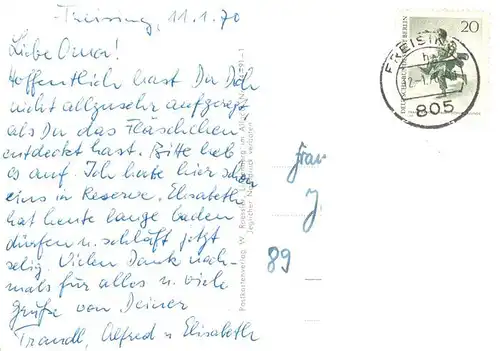 Freising, 11.1.70
Liebe Oma!
Hoffentlich hast Du Dich
nicht allzusehr aufgeregt
als Du das Fläschchen
entdeckt hast. Bitte heb
es auf. Ich habe hier schon
eins in Reserve. Elisabeth
hat heute lange baden
dürfen u. schläft jetzt
selig. Vielen Dank noch-
mals für alles u. viele
Grüße von Deiner
Traudl, Alfred u. Elisabeth
Postkartenverlag W.
Jeglicher Nachdruck verboten
20
DEUTSCHE BUNDESPOST BERLIN
FREISING
805
Frau
J.
89